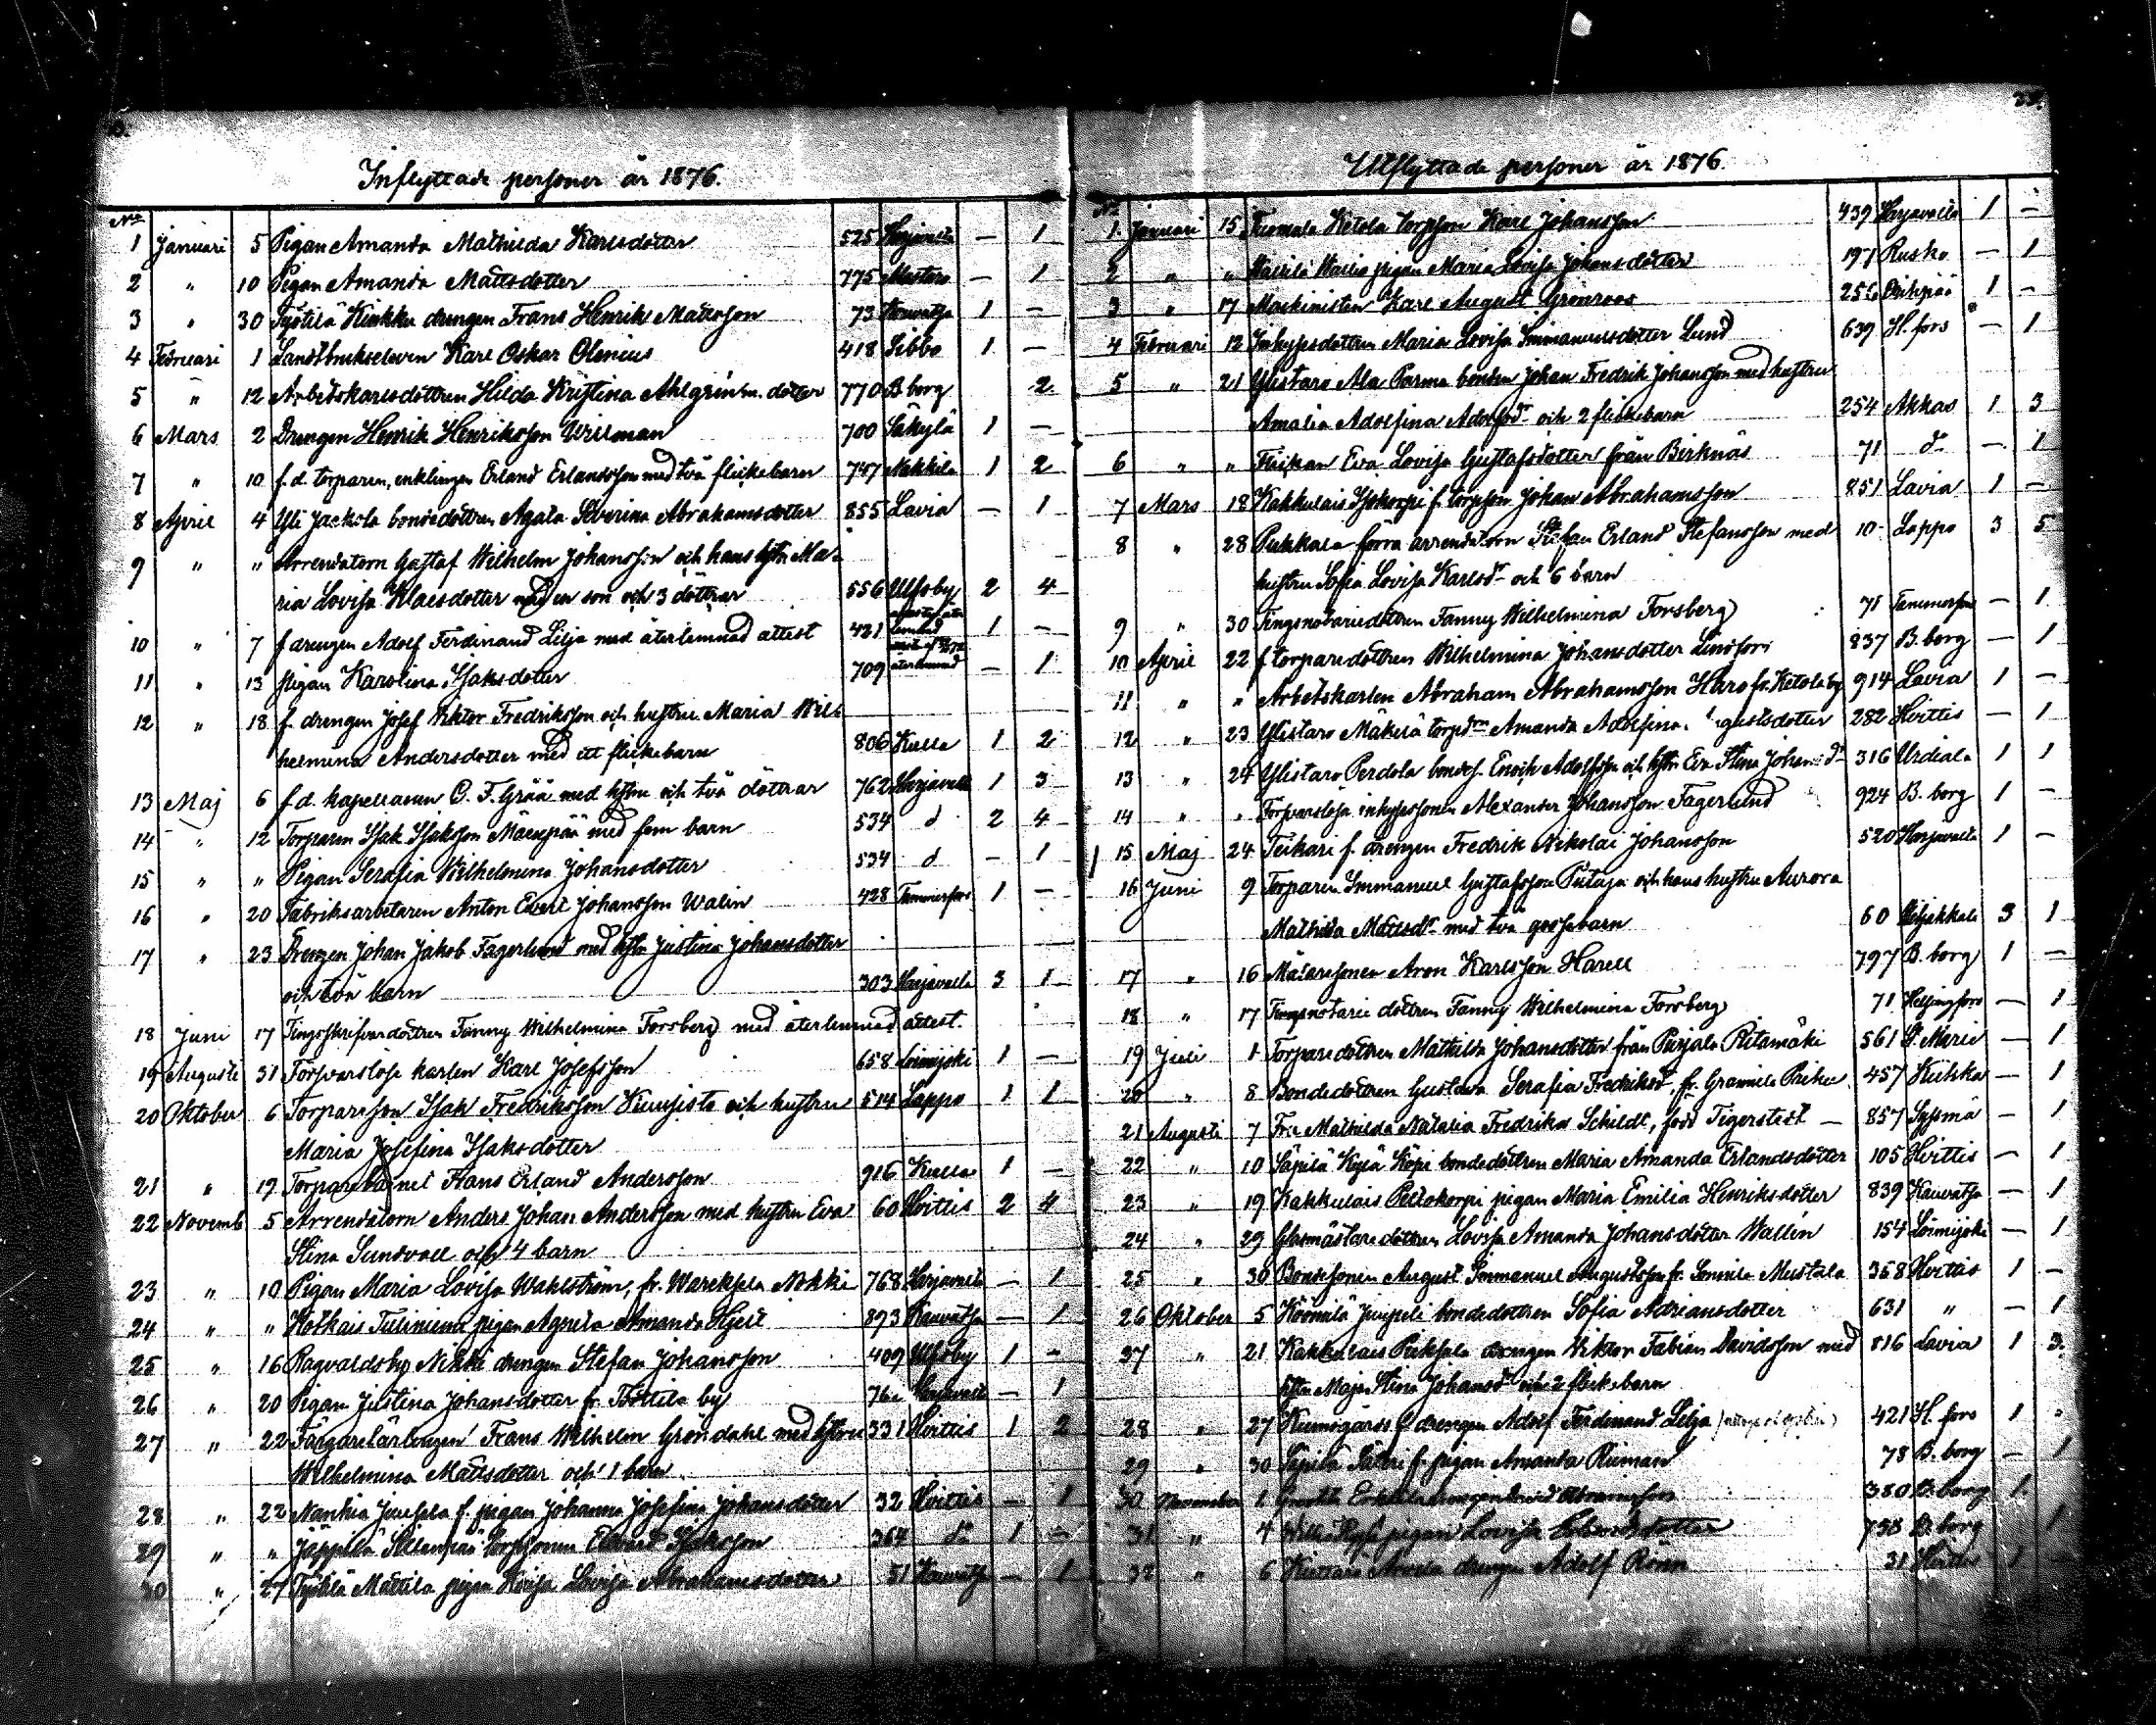 Inflyttade personer år 1876.
No
1 Januari 5 Pigan Amanda Mathilda Karlsdotter 525 Harjavalta — 1
2 " 10 Pigan Amanda Mattsdotter 775 — 1
3 " 30 Työtilä Kinkku drengen Frans Henrik Matsson 73 Kauvatsa 1 —
4 Februari 1 Landtbrukseleven Karl Oskar Olenius 418 Sibbo 1 —
5 " 12 Arbetskarlsdottren Hilda Kristina Ahlgrén m. dotter 770 B.borg 2
6 Mars 2 Drengen Henrik Henriksson Wrilman 700 Säkylä 1 —
7 " 10 f.d. torparen, enklingen Erland Erlandsson med två flickebarn 747 Nakkila 1 2
8 April 4 Yli Jaakola bondedottren Agata Severina Abrahamsdotter 855 Lavia — 1
9 " " Arrendatorn Gustaf Wilhelm Johansson och hans hstru Ma-
ria Lovisa Klaesdotter med en son och 3 döttrar 556 Ulfsby 2 4
10 " 7 f drengen Adolf Ferdinand Lilja med återlemnad attest 421 1 —
11 " 13 pigan Karolina Isaksdotter 709 återlemnad — 1
12 " 18 f. drengen Josef Viktor Fredriksson och hustru Maria Wil-
helmina Andersdotter med ett flickebarn 806 Kulla 1 2
13 Maj 6 f.d. kapellanen C. F. Grää med hstru och två döttrar 762 Harjavalta 1 3
14 " 12 Torparen Isak Isaksson Mäenpää med fem barn 534 d 2 4
15 " " Pigan Serafia Wilhelmina Johansdotter 534 d — 1
16 " 20 Fabriksarbetaren Anton Evert Johansson Walin 428 Tammerfors 1 —
17 " 23 Drengen Johan Jakob Fagerlund med hstru Justina Johansdotter
och två barn 303 Harjavalta 3 1
18 Juni 17 Tingsskrifvaredottren Fanny Wilhelmina Forsberg med återlemnad attest.
19 Augusti 31 Försvarslöse karlen Karl Josefsson 658 Loimijoki 1 —
20 Oktober 6 Torparesson Isak Fredriksson Kuusisto och hustru 514 Lappo 1 1
Maria Josefina Isaksdotter
21 " 19 Torparebarnet Frans Erland Andersson 916 Kulla 1 —
22 Novemb 5 Arrendatorn Anders Johan Andersson med hustru Eva 60 Hvittis 2 4
Stina Sundvall och 4 barn
23 " 10 Pigan Maria Lovisa Wahlström, fr. Warekkela Nikki 768 Harjavalta — 1
24 " " pigan Agnita Amanda Kjell 893 Kauvatsa — 1
25 " 16 Ragvaldsby Nikki drengen Stefan Johansson 409 Ulfsby 1 —
26 " 20 Pigan Justina Johansdotter fr. Tåttila by Harjavalta — 1
27 " 22 Färgarelärlingen Frans Wilhelm Gröndahl med hstru 331 Hvittis 1 2
Wilhelmina Mattsdotter och 1 barn
28 " 22 f. pigan Johanna Josefina Johansdotter 32 Hvittis — 1
29 " " torpsonen Edvard Isaksson 364 do 1 —
30 " 27 Työtilä Mattila pigan Lovisa Abrahamsdotter 51 Kauvatsa — 1
Utflyttade personer år 1876.
No
1 Januari 15 Tuomala Ketola torpson Karl Johansson 439 Harjavalta 1 —
2 " " pigan Maria Lovisa Johansdotter 197 Rusko — 1
3 " 17 Maskinisten Karl August Grönroos 256 1 —
4 Februari 12 Inhysesdottren Maria Lovisa Immanuelsdotter Lund 639 H.fors — 1
5 " 21 Ylistaro Ala Parma bonden Johan Fredrik Johansson med hustru
Amalia Adolfina Adolfsdr och 2 flickebarn 254 Akkas 1 3
6 " " Flickan Eva Lovisa Gustafsdotter från Birknäs 71 do — 1
7 Mars 18 Kakkulais f. torpson Johan Abrahamsson 851 Lavia 1 —
8 " 28 Pukkala förra arrendatorn Stefan Erland Stefansson med 10 Lappo 3 5
hustru Sofia Lovisa Karlsdr och 6 barn
9 " 30 Tingsnotariedottren Fanny Wilhelmina Forsberg 71 Tammerfors — 1
10 April 22 f torparedottren Wilhelmina Johansdotter Lindfors 837 B.borg — 1
11 " " Arbetskarlen Abraham Abrahamsson Haro fr. Ketola by 914 Lavia 1 —
12 " 23 Ylistaro Mäkelä Amanda Adolfina Augustsdotter 282 Hvittis — 1
13 " 24 Ylistaro Perdola Enoch Adolfsson och hstru Eva Stina Johansdr 316 Urdiala 1 1
14 " " Försvarslösa inhysessonen Alexander Johansson Fagerlund 924 B.borg 1 —
15 Maj 24 Teikari f. drengen Fredrik Nikolai Johansson 520 Harjavalta 1 —
16 Juni 9 Torparen Immanuel Gustafsson och hans hustru Aurora
Mathilda Mattsdr med två gossebarn 60 3 1
17 " 16 Målaresonen Aron Karlsson Harell 797 B.borg 1 —
18 " 17 Tingsnotarie dottren Fanny Wilhelmina Forsberg 71 Helsingfors — 1
19 Juli 1 Torparedottren Mathilda Johansdotter från Purjala Ritamäki 561 St. Marie — 1
20 " 8 Bondedottren Gustava Serafia Fredriksdr fr. Gramila Prihti 457 — 1
21 Augusti 7 Fru Mathilda Natalia Fredrika Schildt, född Tigerstedt — 857 Sysmä — 1
22 " 10 Säpilä Kylä Köpi bondedottren Maria Amanda Erlandsdotter 105 Hvittis — 1
23 " 19 Kakkulais Peltokorpi pigan Maria Emilia Henriksdotter 839 Kauvatsa — 1
24 " 29 Glasmästaredottren Lovisa Amanda Johansdotter Wallin 154 Loimijoki — 1
25 " 30 Bondesonen August Immanuel Augustsson fr. Sonnila Mustala 368 Hvittis 1 —
26 Oktober 5 Köömilä Junnila bondedottren Sofia Adriansdotter 631 " — 1
27 " 21 Kakkulais drengen Viktor Fabian Davidsson med 816 Lavia 1 3
hstru Maja Stina Johansdr och 2 flickebarn
28 " 27 Kumogårds f drengen Adolf Ferdinand Lilja 421 H.fors 1
29 " 30 Säpilä f. pigan Amanda Riiman 78 B.borg — 1
30 November 1 380 B.borg 1
31 " 4 pigan Lovisa 758 B.borg 1
32 " 6 Kiettare Arvela drengen Adolf Rönn 31 Hvittis 1 —